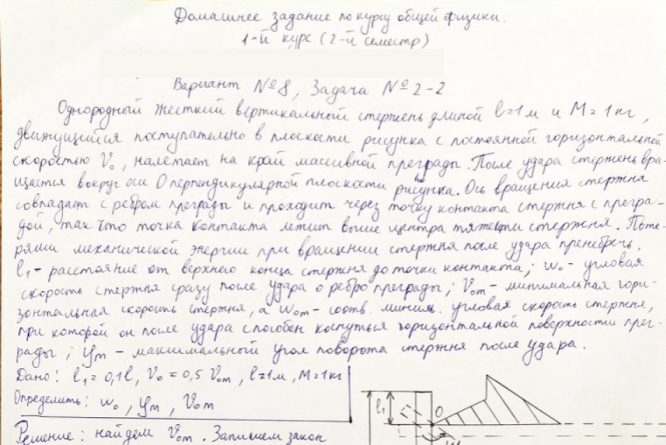 Домашнее задание по курсу общей физики.
1-й курс (2-й семестр)
Вариант №8, Задача №2-2.
Однородный жесткий вертикальный стержень длиной l=1м и M=1кг,
движущийся поступательно в плоскости рисунка с постоянной горизонтальной
скоростью V₀, налетает на край массивной преграды. После удара стержень вра-
щается вокруг оси О перпендикулярной плоскости рисунка. Ось вращения стержня
совпадает с ребром преграды и проходит через точку контакта стержня с прегра-
дой, так что точка контакта лежит выше центра тяжести стержня. Поте-
рями механической энергии при вращении стержня после удара пренебречь.
l₁ - расстояние от верхнего конца стержня до точки контакта; ω₀ - угловая
скорость стержня сразу после удара о ребро преграды; V₀m - минимальная гори-
зонтальная скорость стержня, а ω₀m - соотв. миним. угловая скорость стержня,
при которой он после удара способен коснуться горизонтальной поверхности прег-
рады; φm - максимальный угол поворота стержня после удара.
Дано: l₁ = 0,1l, V₀ = 0,5 V₀m, l=1м, M=1кг
Определить: ω₀, φm, V₀m
Решение: найдем V₀m. Запишем закон
l₁
О